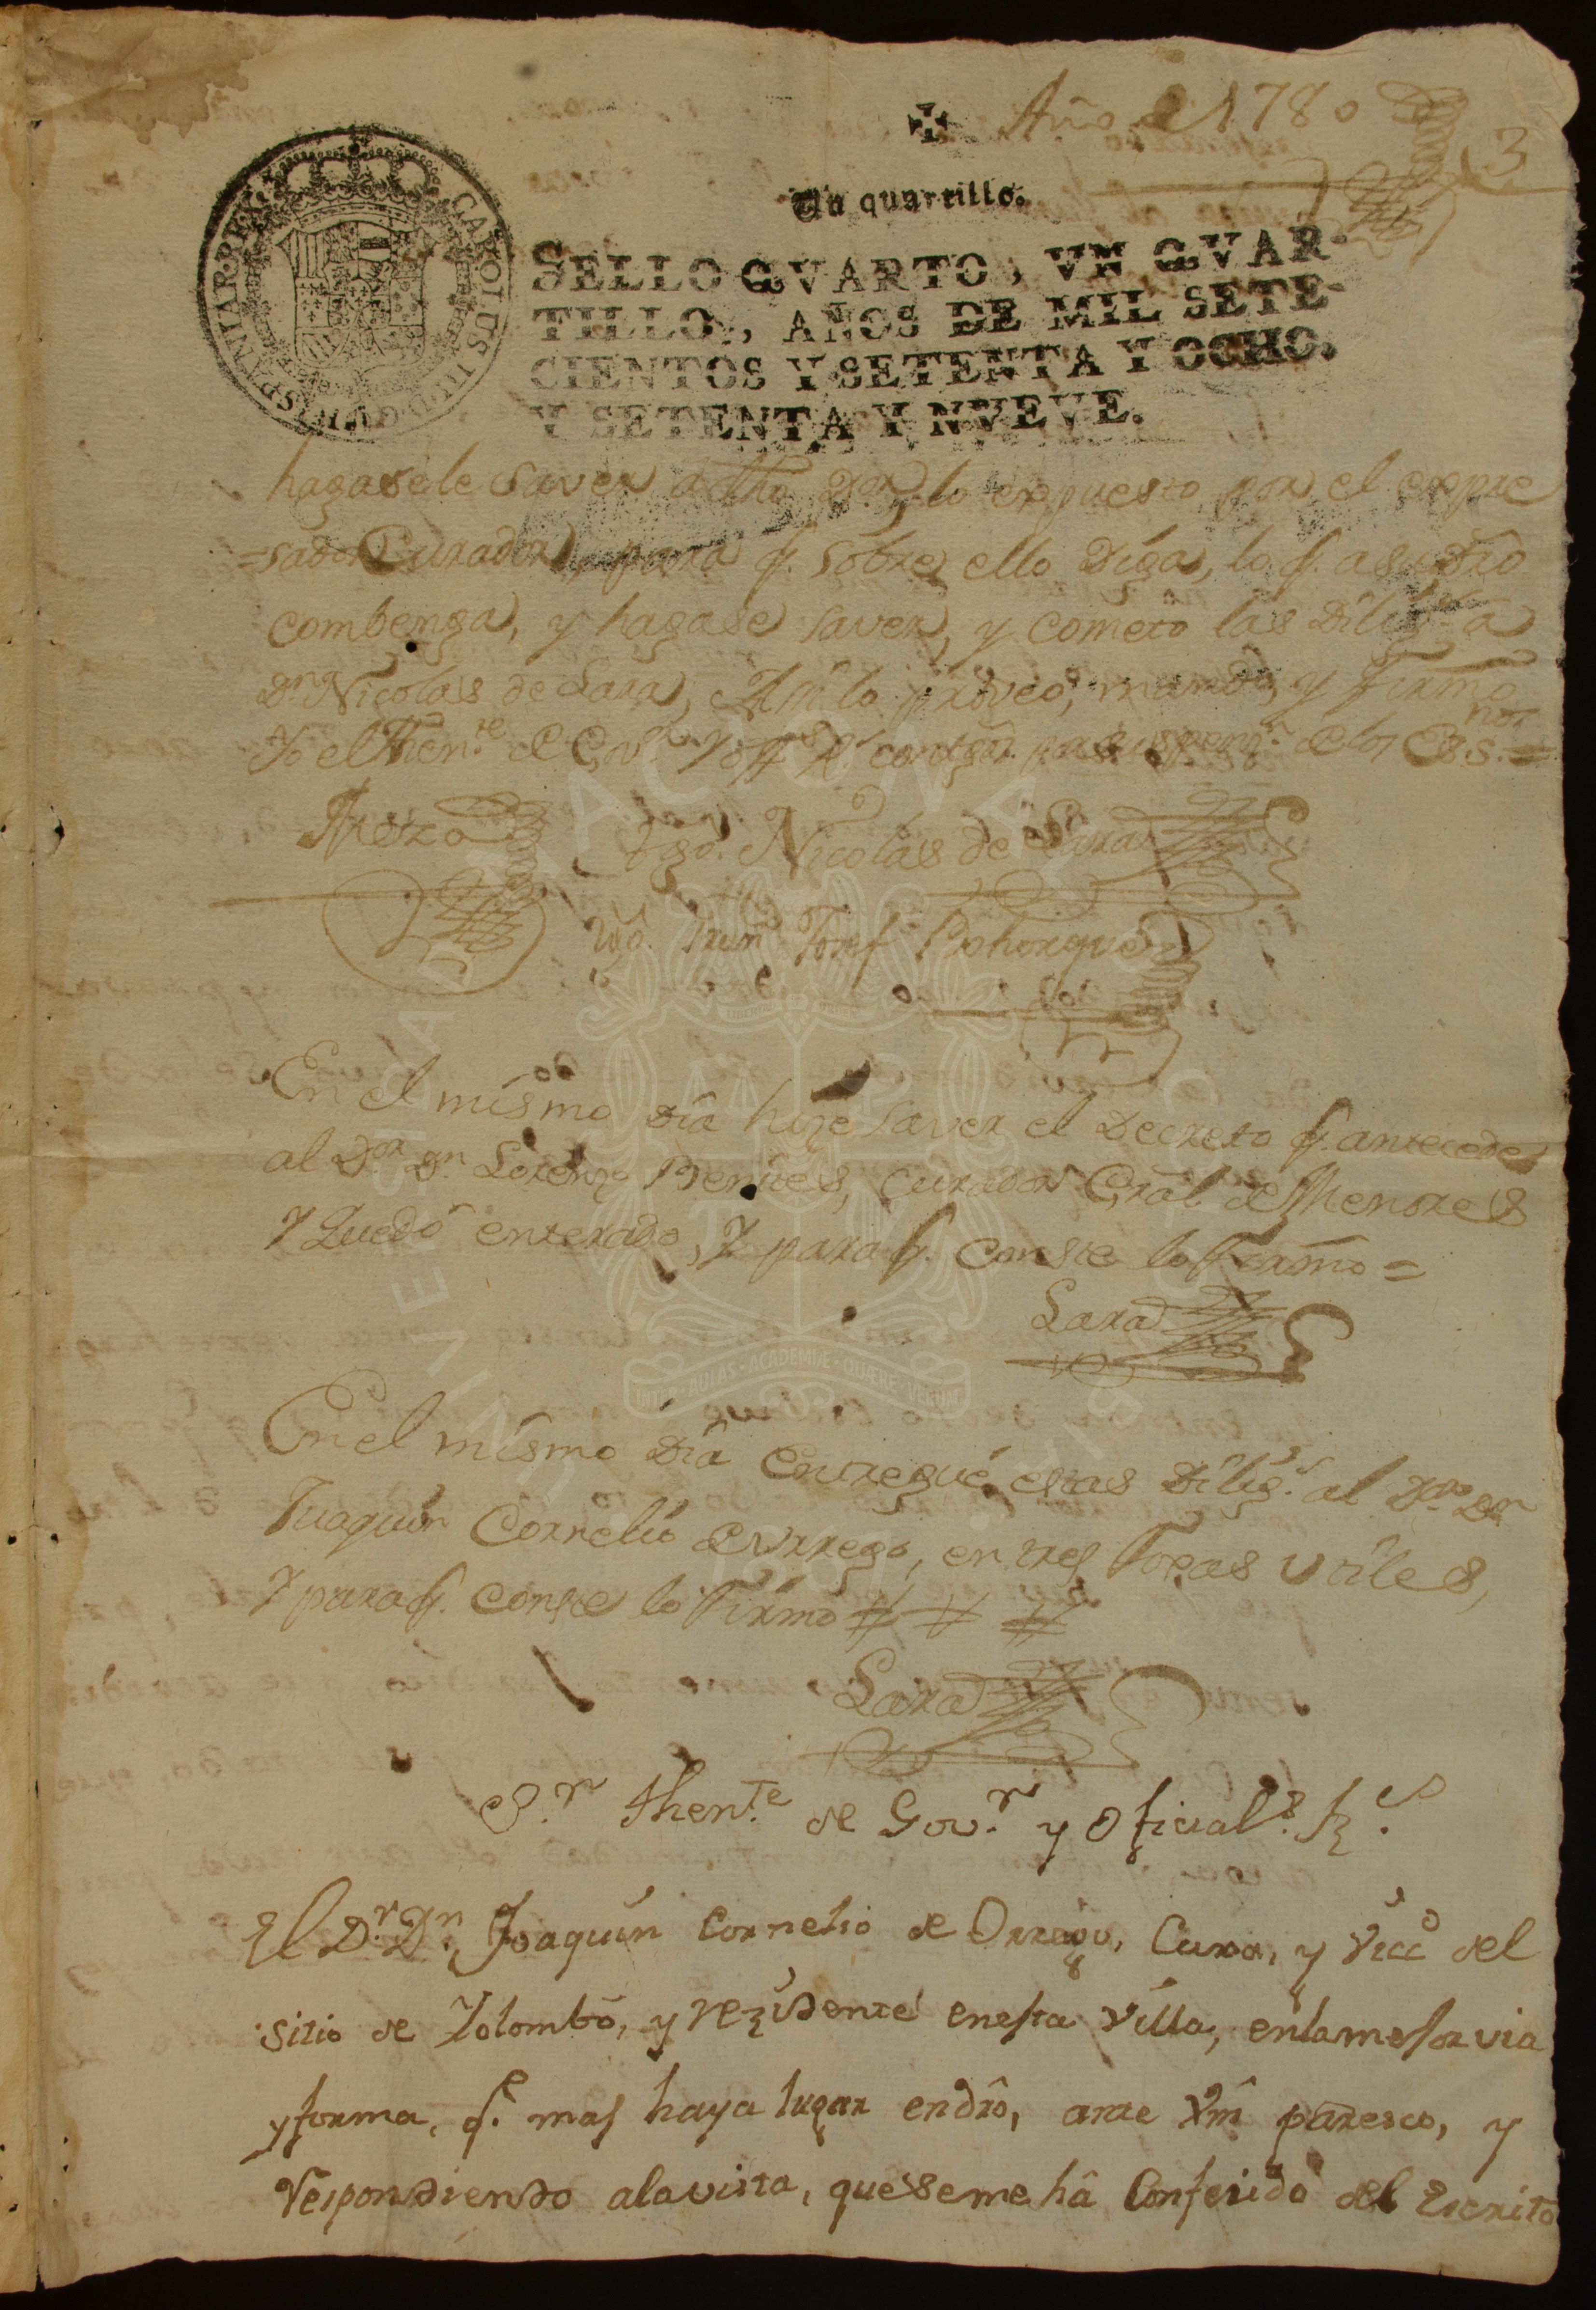 Año de 1780
3
Un quartillo.
SELLO QVARTO, VN QVAR-
TILLO, AÑOS DE MIL SETE-
CIENTOS Y SETENTA Y OCHO.
Y SETENTA Y NVEVE.
CAROLUS III D G HISPANIAR REX
hagasele saver a dho Dor. lo expuesto por el expre
=sador Curador, para q. sobre ello Diga, lo q. a su dro
combenga, y hagase saver, y cometo las Dilig.s a
Dn. Nicolas de Lara, Asi lo proveo, mando, y Firmo
Yo el Then.te de Gov.r y offs R.s con tgos. por suspenn. de los Ess.nos =
tgo. Nicolas de Lara
tgo. Juan Josef Bohorques
En el mismo Dia hize saver el Decreto q. antecede
al Dor. Dn. Lorenzo Benites, Curador Gral de Menores
Y Quedó enterado, Y para q. conste lo Firmo =
Lara
En el mismo Dia entregué estas Dilig.s al Dor. Dn
Juaquin Cornelio de Urrego, en tres fojas utiles,
Y para q. conste lo Firmo
Lara
S.r Then.te de Gov.r y Oficial.s R.s
El D.r D.n Joaquin Cornelio de Orrego, Cura, y Vicº del
sitio de Yolombó, y rezidente en esta Villa, en la mejor via
y forma, q.e mas haya lugar en dro, ante Vm paresco, y
Respondiendo a la vista, que se me há Conferido del Escrito
INTER · AULAS · ACADEMIÆ · QUÆRE · VERUM
UNIVERSIDAD NACIONAL DE COLOMBIA